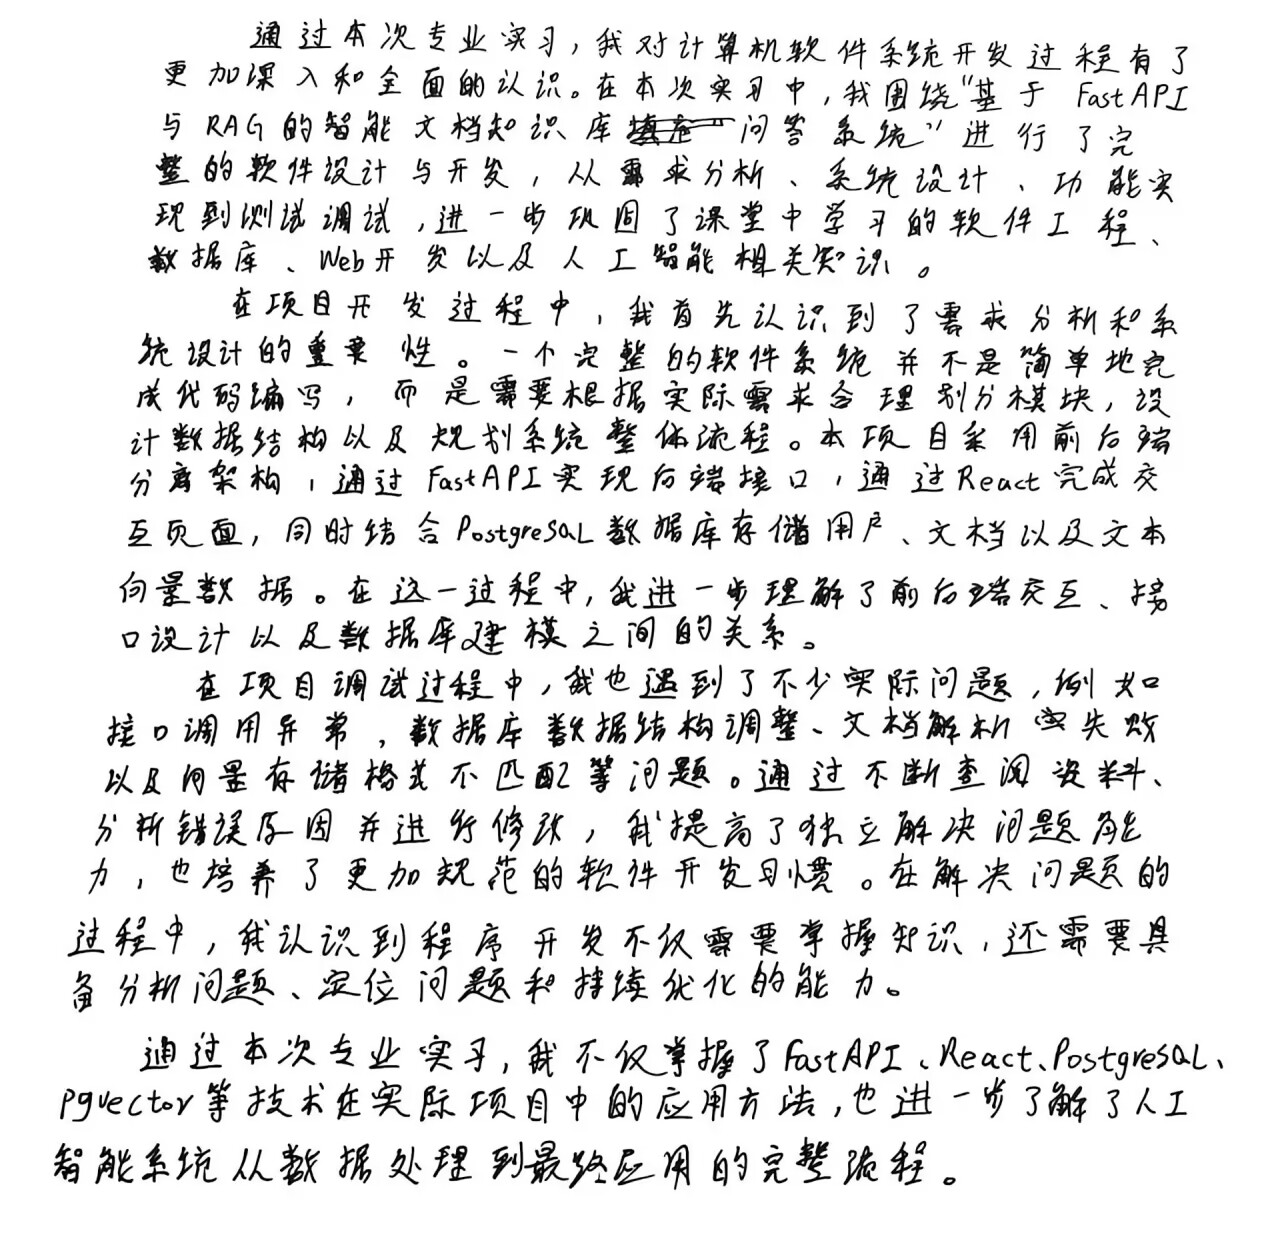 通过本次专业实习，我对计算机软件系统开发过程有了
更加深入和全面的认识。在本次实习中，我围绕“基于 FastAPI
与 RAG 的智能文档知识库问答系统”进行了完
整的软件设计与开发，从需求分析、系统设计、功能实
现到测试调试，进一步巩固了课堂中学习的软件工程、
数据库、Web开发以及人工智能相关知识。
在项目开发过程中，我首先认识到了需求分析和系
统设计的重要性。一个完整的软件系统并不是简单地完
成代码编写，而是需要根据实际需求合理划分模块，设
计数据结构以及规划系统整体流程。本项目采用前后端
分离架构，通过 FastAPI实现后端接口，通过React完成交
互页面，同时结合PostgreSQL数据库存储用户、文档以及文本
向量数据。在这一过程中，我进一步理解了前后端交互、接
口设计以及数据库建模之间的关系。
在项目调试过程中，我也遇到了不少实际问题，例如
接口调用异常，数据库数据结构调整、文档解析失败
以及向量存储格式不匹配等问题。通过不断查阅资料、
分析错误原因并进行修改，我提高了独立解决问题能
力，也培养了更加规范的软件开发习惯。在解决问题的
过程中，我认识到程序开发不仅需要掌握知识，还需要具
备分析问题、定位问题和持续优化的能力。
通过本次专业实习，我不仅掌握了FastAPI、React、PostgreSQL、
pgvector等技术在实际项目中的应用方法，也进一步了解了人工
智能系统从数据处理到最终应用的完整流程。